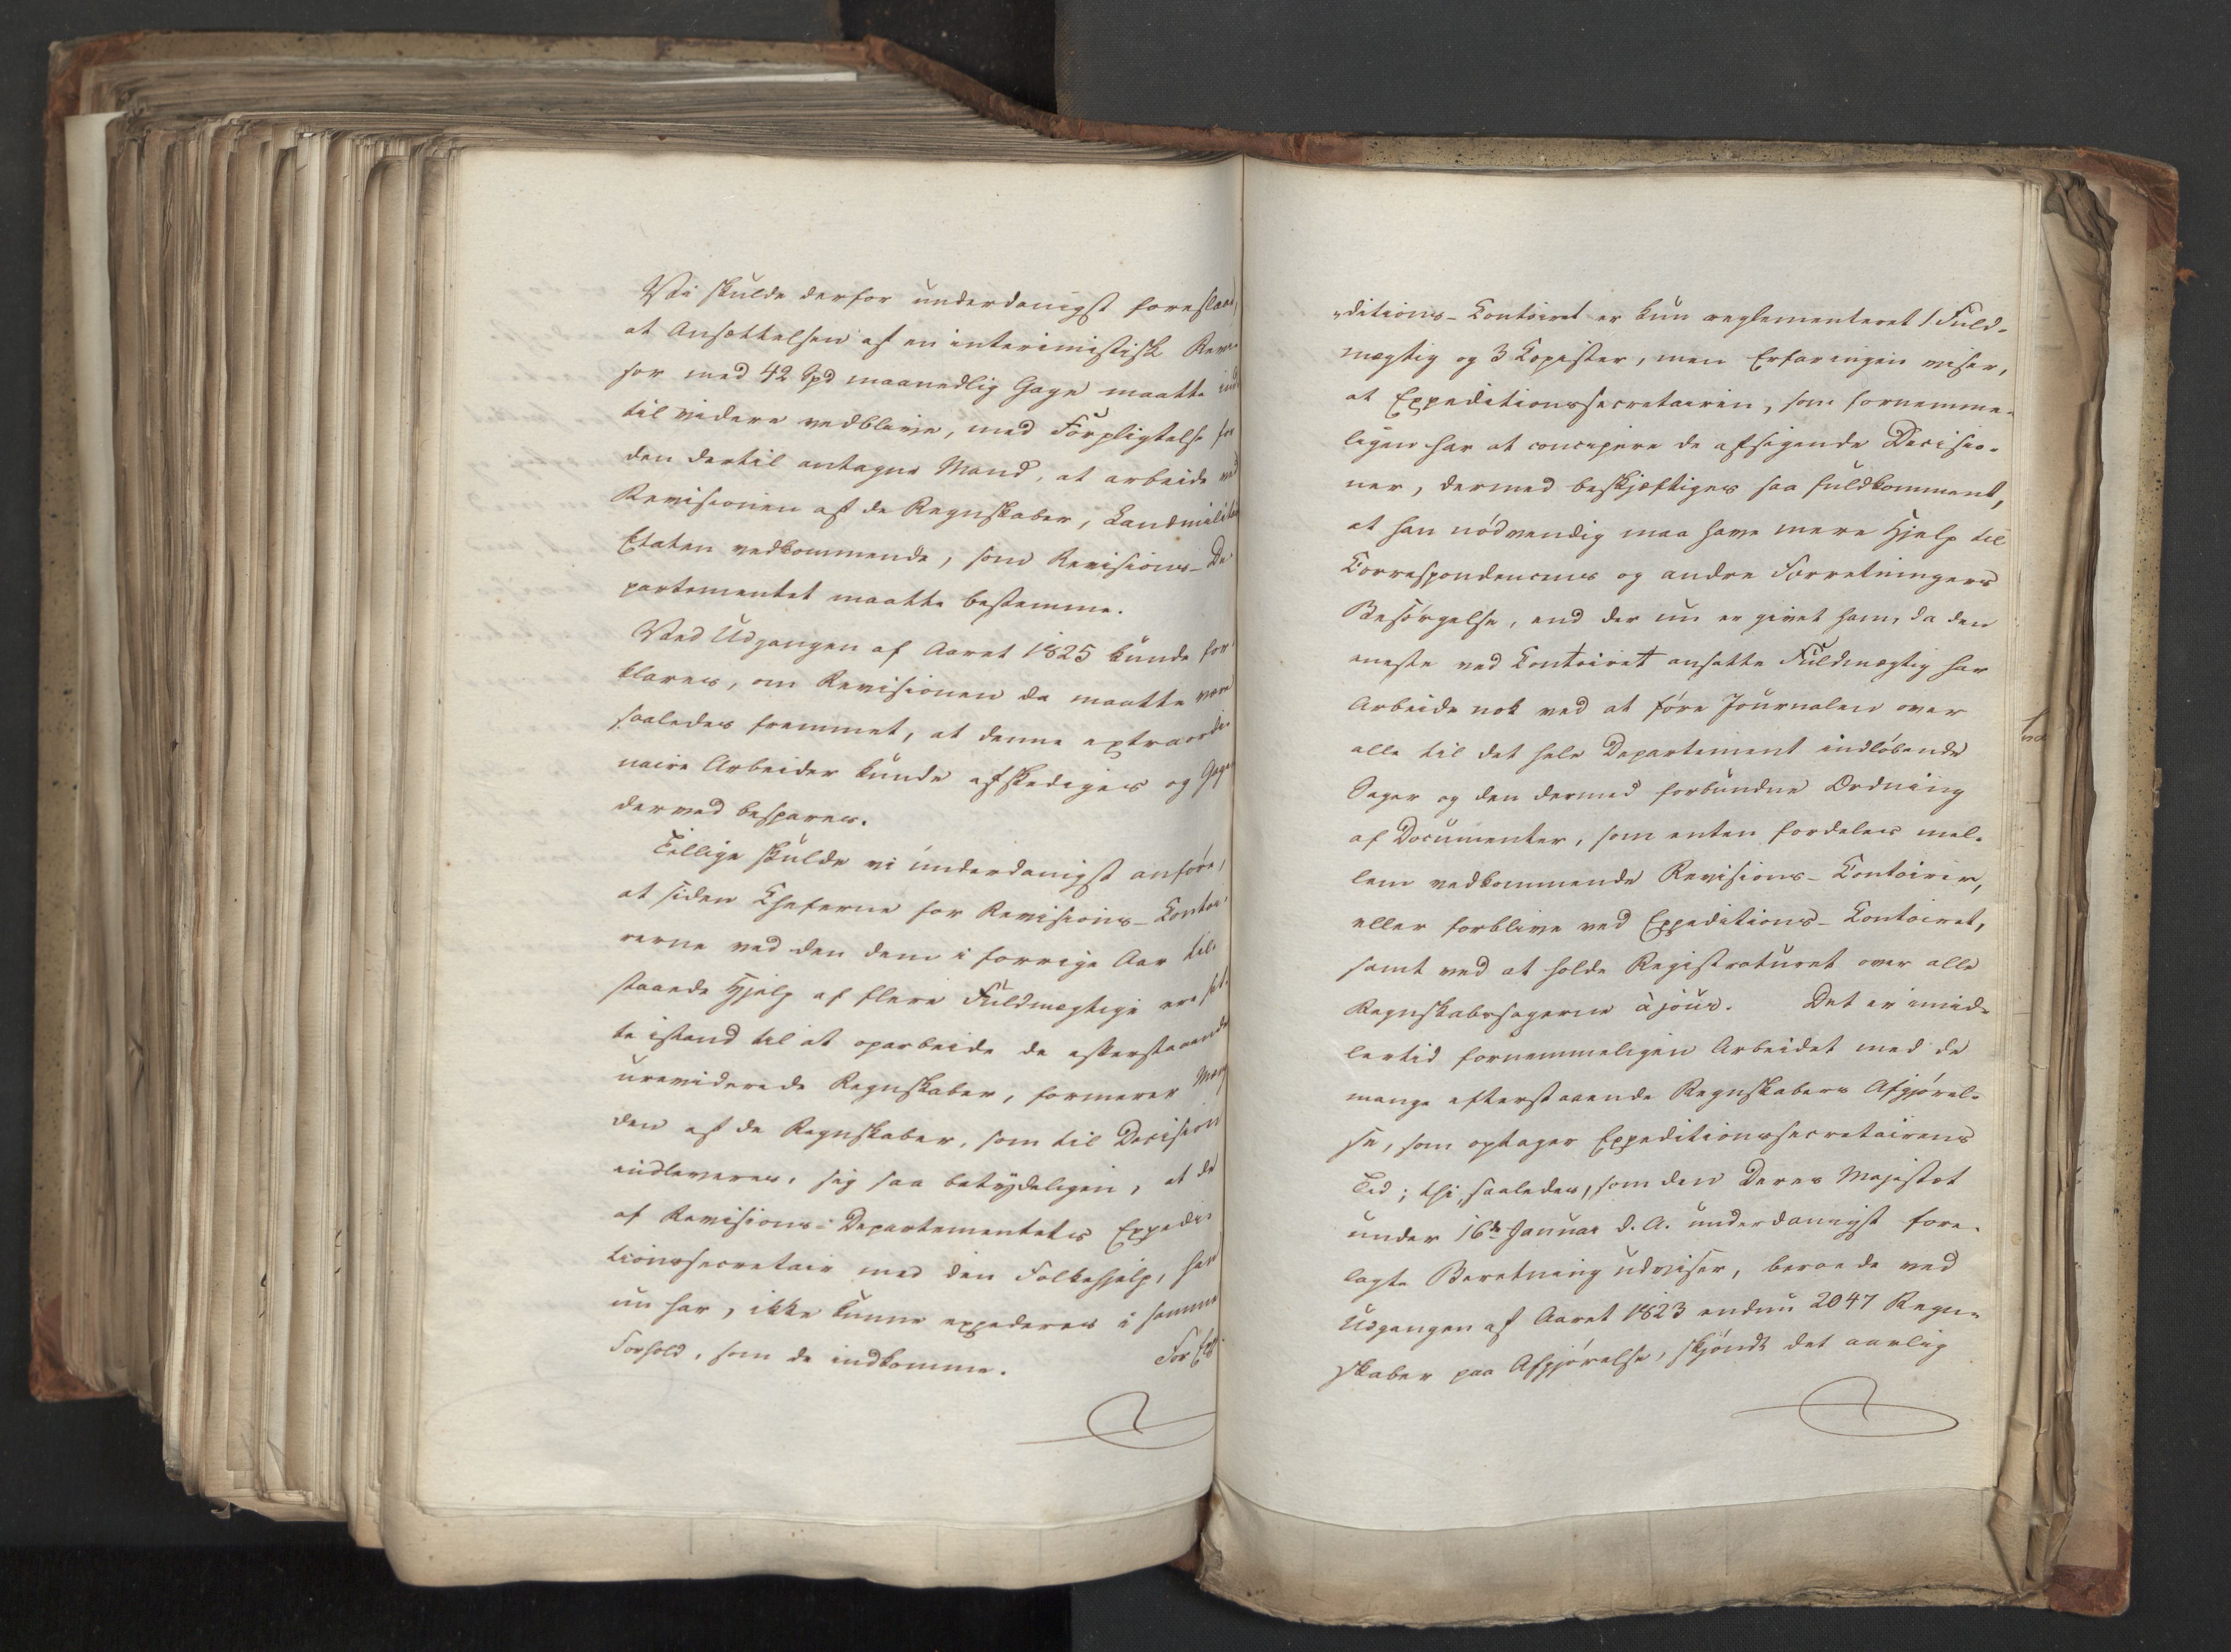 Vi skulde derfor underdanigst foreslaae,
at Ansættelsen af en interimistisk Revi-
sor med 42 Spd maanedlig Gage maatte ind
til videre vedblive, med Forpligtelse for
den dertil antagne Mand, at arbeide ved
Revisionen af de Regnskaber, Landmilitair
Etaten vedkommende, som Revisions-De
partementet maatte bestemme.
Ved Udgangen af Aaret 1825 kunde for-
klares, om Revisionen da maatte være
saaledes fremmet, at denne extraordi-
naire Arbeider kunde afskediges og Gagen
derved bespares.
Tillige skulde vi underdanigst anføre,
at siden Cheferne for Revisions-Contoi-
rerne ved den dem i forrige Aar til-
staaede Hjelp af flere Fuldmægtige ere sat-
te istand til at oparbeide de efterstaaende
ureviderede Regnskaber, formerer Mæng
den af de Regnskaber, som til Decision
indleveres, sig saa betydeligen, at de
af Revisions-Departementets Expedi-
tionssecretair med den Folkehjelp, han
nu har, ikke kunne expederes i samme
Forhold, som de indkomme.
For Exp
"ditions-Contoiret er kun reglementeret 1 Fuld-
mægtig og 3 Copister, men Erfaringen viser,
at Expeditionssecretairen, som fornemme-
ligen har at concipere de afsigende Decisio-
ner, dermed beskjæftiges saa fuldkomment,
at han nödvendig maa have mere Hjelp til
Correspondencens og andre Forretningers
Besörgelse, end der nu er givet ham, da den
eneste ved Contoiret ansatte Fuldmægtig har
Arbeide nok ved at före Journalen over
alle til det hele Departement indløbende
Sager og den dermed forbundne Ordning
af Documenter, som enten fordeles mel-
lem vedkommende Revisions-Contoirer,
eller forblive ved Expeditions-Contoiret,
samt ved at holde Registraturet over alle
Regnskabssagerne à jour. Det er imid-
lertid fornemmeligen Arbeidet med de
mange efterstaaende Regnskabers Afgjörel-
se, som optager Expeditionssecretairens
Tid; thi, saaledes, som den Deres Majestæt
under 16de Januar d. A. underdanigst fore-
lagte Beretning udviser, beroede ved
Udgangen af Aaret 1823 endnu 2047 Regn-
skaber paa Afgjörelse, skjöndt det aarlig